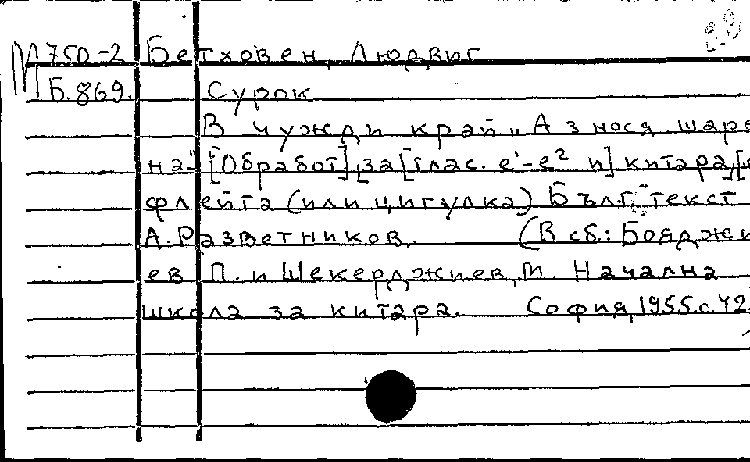 М750-2 Бетховен, Людвиг
Б.869. Сурок
В чужди край „Аз нося шаре
на" [Обработ], за [глас. e¹-e² и] китара, [и
флейта (или цигулка). Бълг. текст
А. Разветников. (В сб.: Бояджи
ев П. и Шекерджиев, М. Начална
школа за китара. София, 1955. с. 42